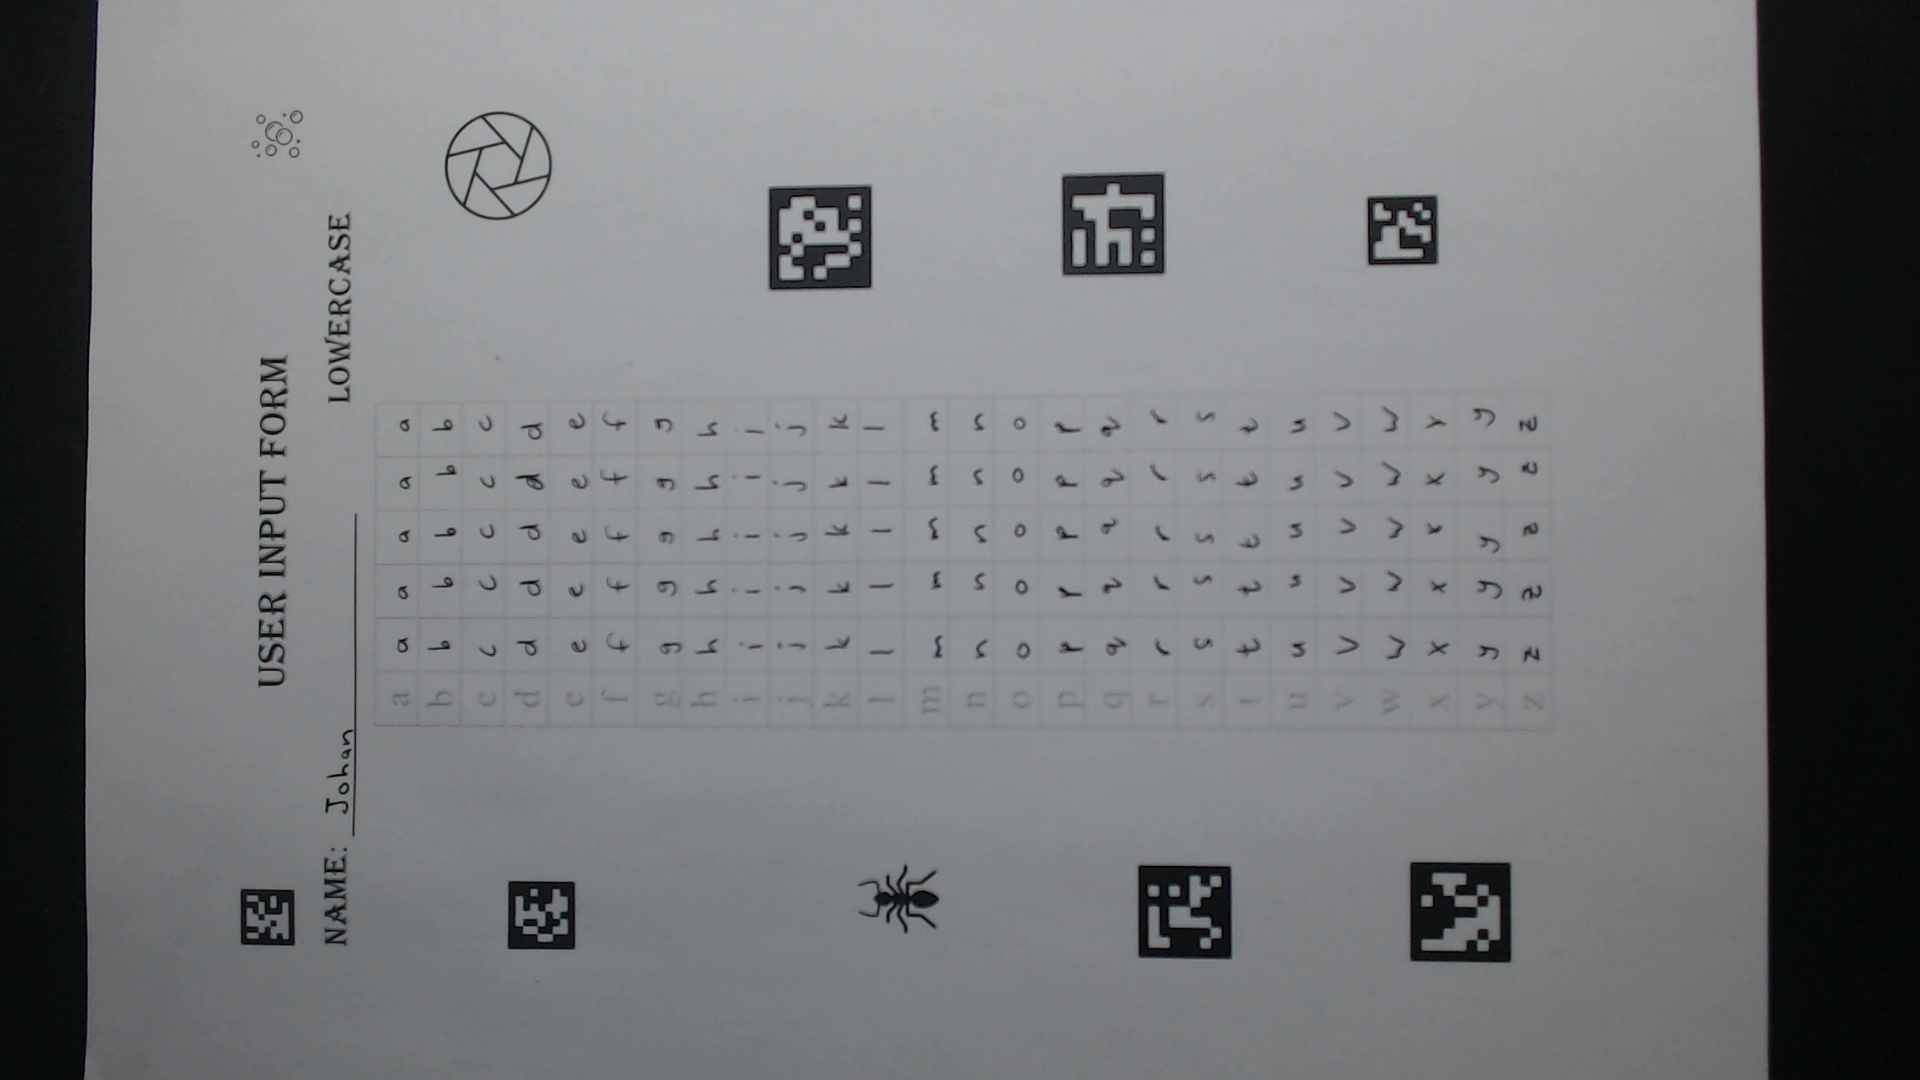 USER INPUT FORM
NAME: Johan LOWERCASE
a a a a a a
b b b b b b
c c c c c c
d d d d d d
e e e e e e
f f f f f f
g g g g g g
h h h h h h
i i i i i i
j j j j j j
k k k k k k
l l l l l l
m m m m m m
n n n n n n
o o o o o o
p p p p p p
q q q q q q
r r r r r r
s s s s s s
t t t t t t
u u u u u u
v v v v v v
w w w w w w
x x x x x x
y y y y y y
z z z z z z